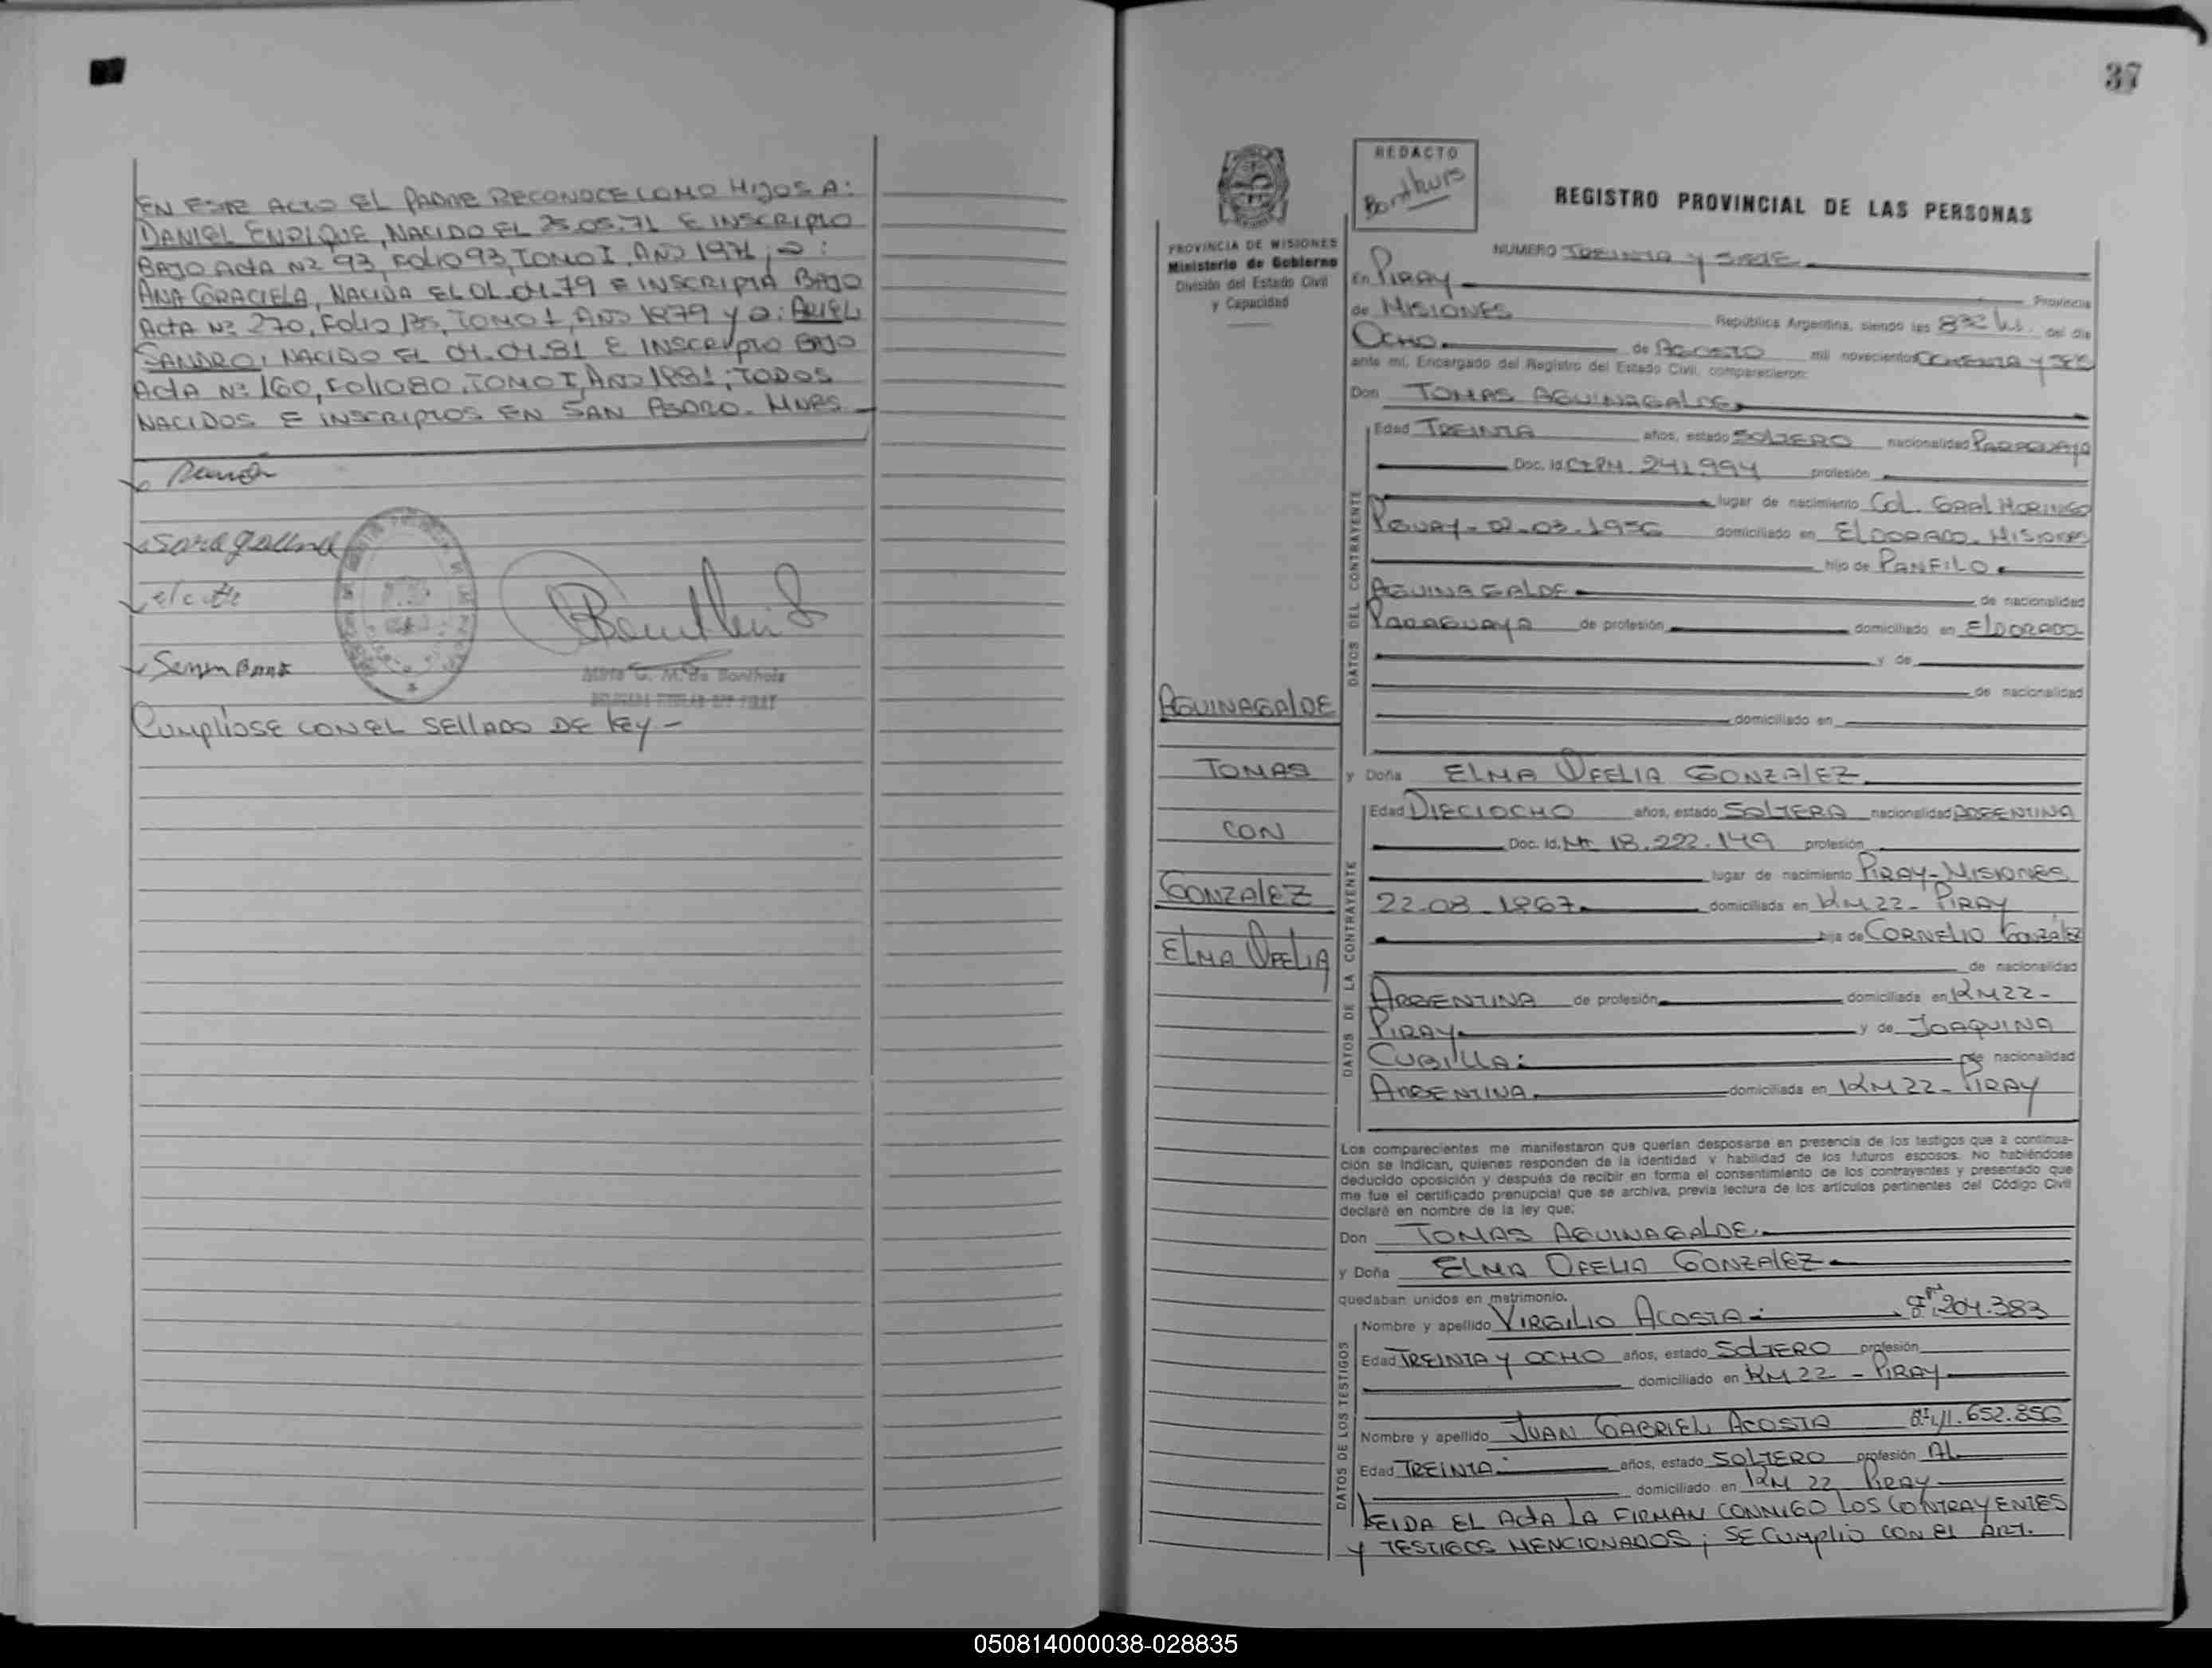 EN ESTE ACTO EL PADRE RECONOCE COMO HIJOS A:
DANIEL ENRIQUE, NACIDO EL 25.05.71 E INSCRIPTO
BAJO ACTA Nº 93, FOLIO 93, TOMO I, AÑO 1971; a:
ANA GRACIELA, NACIDA EL 01.04.79 E INSCRIPTA BAJO
ACTA Nº 270, FOLIO 135, TOMO I, AÑO 1979 y a: ARIEL
SANDRO, NACIDO EL 01.01.81 E INSCRIPTO BAJO
ACTA Nº 160, FOLIO 80, TOMO I, AÑO 1981; TODOS
NACIDOS E INSCRIPTOS EN SAN PEDRO. MNES
CUMPLIOSE CON EL SELLADO DE LEY -
37
REDACTO
Bonthurs
REGISTRO PROVINCIAL DE LAS PERSONAS
PROVINCIA DE MISIONES
Ministerio de Gobierno
División del Estado Civil
y Capacidad
NUMERO TREINTA y SIETE
En PIRAY Provincia
de MISIONES República Argentina, siendo las 8 30 hs. del día
OCHO de AGOSTO mil novecientos OCHENTA y SEIS
ante mí, Encargado del Registro del Estado Civil, comparecieron:
Don TOMAS AGUINAGALDE
DATOS DEL CONTRAYENTE
Edad TREINTA años, estado SOLTERO nacionalidad PARAGUAYA
Doc. Id. CIPM. 241.994 profesión
lugar de nacimiento COL. GRAL MORINGO
PGUAY - 02-03.1956 domiciliado en ELDORADO - MISIONES
hijo de PANFILO
AGUINAGALDE de nacionalidad
PARAGUAYA de profesión domiciliado en ELDORADO
y de
de nacionalidad
domiciliado en
AGUINAGALDE
TOMAS
CON
GONZALEZ
ELMA OFELIA
y Doña ELMA OFELIA GONZALEZ
DATOS DE LA CONTRAYENTE
Edad DIECIOCHO años, estado SOLTERA nacionalidad ARGENTINA
Doc. Id. MI 18.222.149 profesión
lugar de nacimiento PIRAY - MISIONES
22-08-1967 domiciliada en KM 22 - PIRAY
hija de CORNELIO GONZALEZ
de nacionalidad
ARGENTINA de profesión domiciliada en KM 22 -
PIRAY y de JOAQUINA
CUBILLA: de nacionalidad
ARGENTINA domiciliada en KM 22 - PIRAY
Los comparecientes me manifestaron que querían desposarse en presencia de los testigos que a continua-
ción se indican, quienes responden de la identidad y habilidad de los futuros esposos. No habiéndose
deducido oposición y después de recibir en forma el consentimiento de los contrayentes y presentado que
me fue el certificado prenupcial que se archiva, previa lectura de los artículos pertinentes del Código Civil
declaré en nombre de la ley que:
Don TOMAS AGUINAGALDE
y Doña ELMA OFELIA GONZALEZ
quedaban unidos en matrimonio.
DATOS DE LOS TESTIGOS
Nombre y apellido VIRGILIO ACOSTA 8.204.383
Edad TREINTA y OCHO años, estado SOLTERO profesión
domiciliado en KM 22 - PIRAY
Nombre y apellido JUAN GABRIEL ACOSTA 11.652.856
Edad TREINTA años, estado SOLTERO profesión AL
domiciliado en KM 22 PIRAY
LEIDA EL ACTA LA FIRMAN CONMIGO LOS CONTRAYENTES
Y TESTIGOS MENCIONADOS; SE CUMPLIO CON EL ART.
050814000038-028835